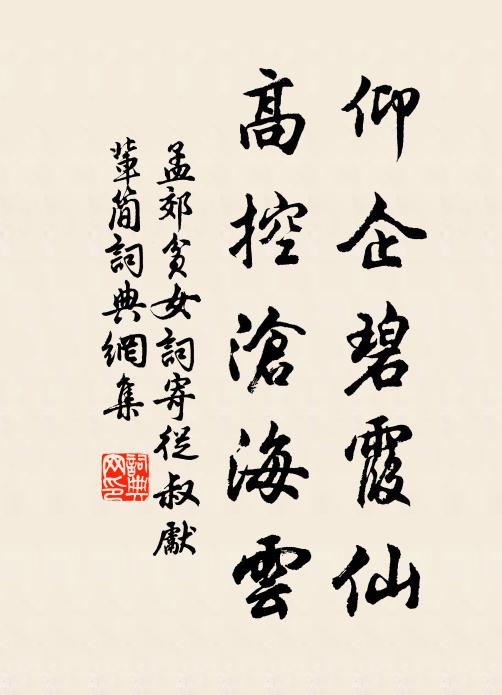 仰企碧霞仙
髙控滄海雲
孟郊貧女詞寄從叔獻
輩簡詞典網集
詞典
网印